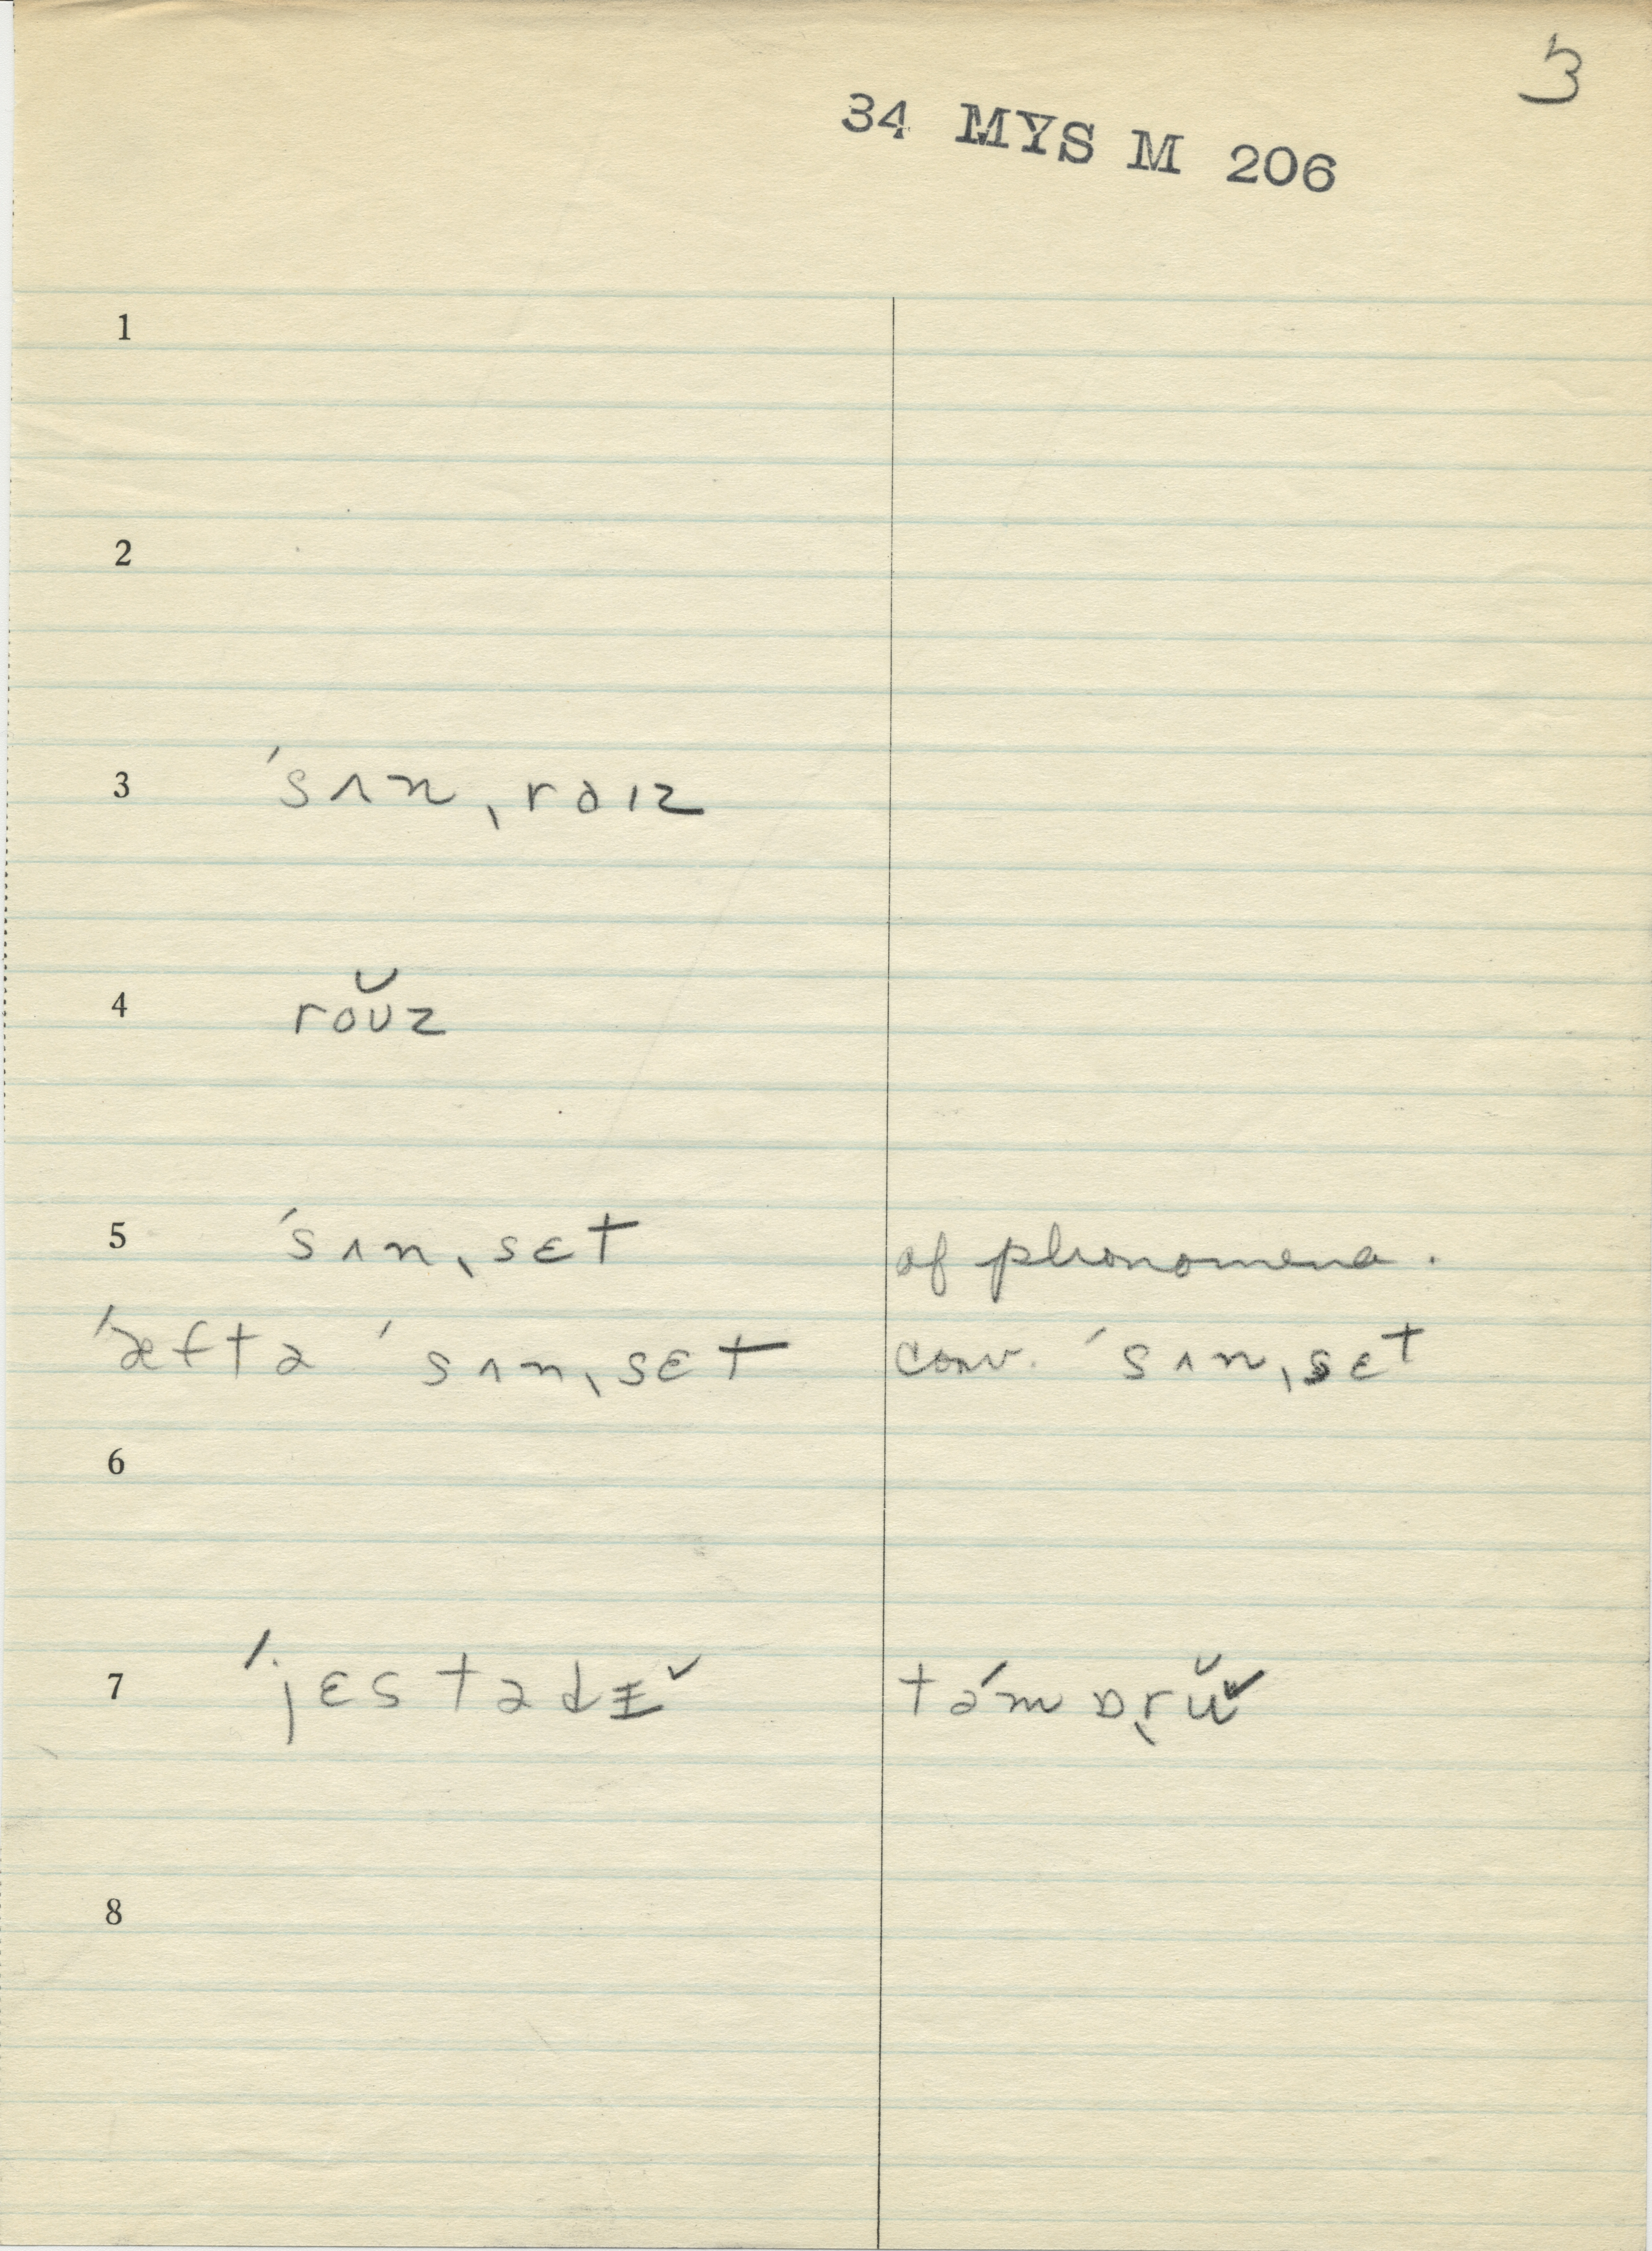 3
34 MYS M 206
1
2
3 ˈsʌnˌraɪz
4 roʊ̆z
5 ˈsʌnˌsɛt of phonomena.
ˈæftə ˈsʌnˌsɛt conv. ˈsʌnˌsɛt
6
7 ˈjɛstədɪ̆
8